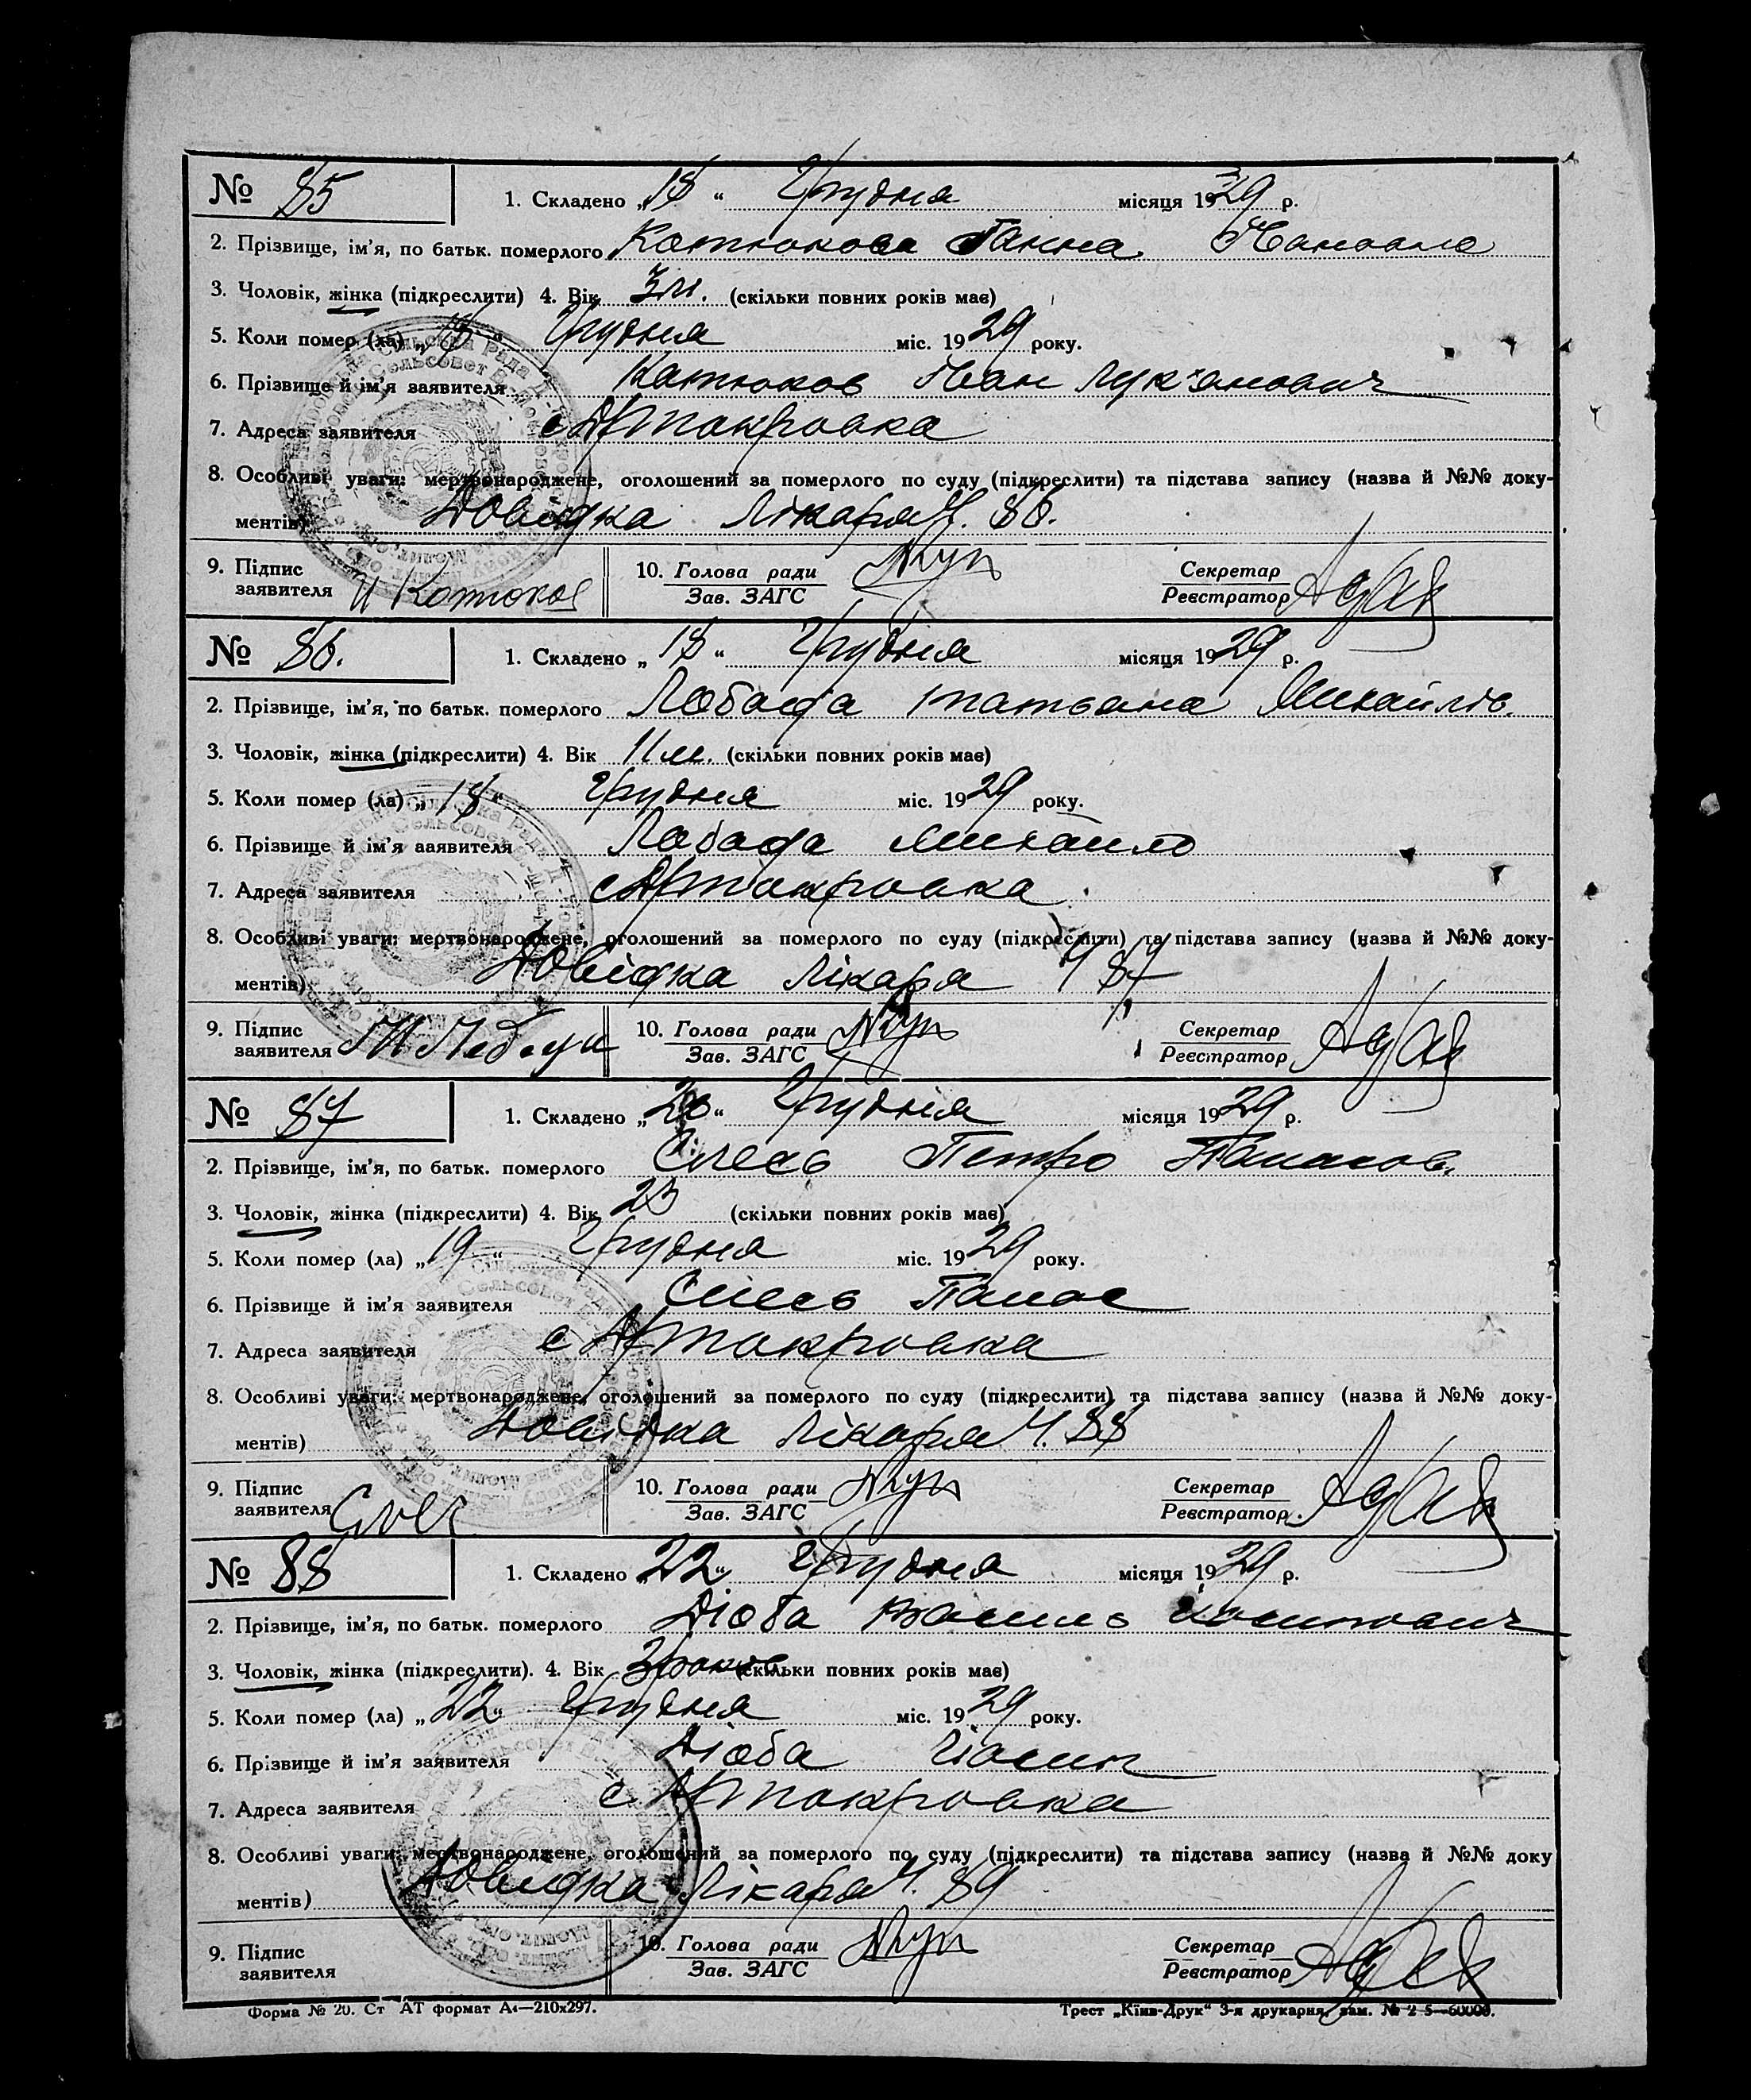 № 85
1. Складено „18“ Грудня місяця 1929 р.
2. Прізвище, ім’я, по батьк. померлого Катюкова Ганна Івановна
3. Чоловік, жінка (підкреслити) 4. Вік 3 м. (скільки повних років має)
5. Коли помер (ла) „18“ Грудня міс. 1929 року.
6. Прізвище й ім’я заявителя Катюков Іван Лук’янович
7. Адреса заявителя с покровка
8. Особливі уваги: мертвонароджене, оголошений за померлого по суду (підкреслити) та підстава запису (назва й №№ доку-
ментів) Довідка Лікаря Ч. 86.
9. Підпис заявителя И Катюков
10. Голова ради
Зав. ЗАГС
Секретар
Реєстратор
№ 86.
1. Складено „18“ Грудня місяця 1929 р.
2. Прізвище, ім’я, по батьк. померлого Лобода татьяна Михайлів.
3. Чоловік, жінка (підкреслити) 4. Вік 11 м. (скільки повних років має)
5. Коли помер (ла) „18“ Грудня міс. 1929 року.
6. Прізвище й ім’я ааявителя Лобода михайло
7. Адреса заявителя с покровка
8. Особливі уваги: мертвонароджене, оголошений за померлого по суду (підкреслити) та підстава запису (назва й №№ доку-
ментів) Довідка Лікаря Ч 87
9. Підпис заявителя
10. Голова ради
Зав. ЗАГС
Секретар
Реєстратор
№ 87
1. Складено „20“ Грудня місяця 1929 р.
2. Прізвище, ім’я, по батьк. померлого Петро Панасов.
3. Чоловік, жінка (підкреслити) 4. Вік 23 (скільки повних років має)
5. Коли помер (ла) „19“ Грудня міс. 1929 року.
6. Прізвище й ім’я заявителя Панас
7. Адреса заявителя с покровка
8. Особливі уваги: мертвонароджене, оголошений за померлого по суду (підкреслити) та підстава запису (назва й №№ доку-
ментів) Довідка Лікаря Ч. 88
9. Підпис заявителя
10. Голова ради
Зав. ЗАГС
Секретар
Реєстратор
№ 88
1. Складено „22“ Грудня місяця 1929 р.
2. Прізвище, ім’я, по батьк. померлого Дюба Василь
3. Чоловік, жінка (підкреслити). 4. Вік 3 роки (скільки повних років має)
5. Коли помер (ла) „22“ Грудня міс. 1929 року.
6. Прізвище й ім’я заявителя Дюба
7. Адреса заявителя с покровка
8. Особливі уваги: мертвонароджене, оголошений за померлого по суду (підкреслити) та підстава запису (назва й №№ доку
ментів) Довідка Лікаря Ч. 89
9. Підпис заявителя
10. Голова ради
Зав. ЗАГС
Секретар
Реєстратор
Форма № 20. Ст АТ формат А4—210х297.
Трест „Київ-Друк“ 3-я друкарня, зам. №